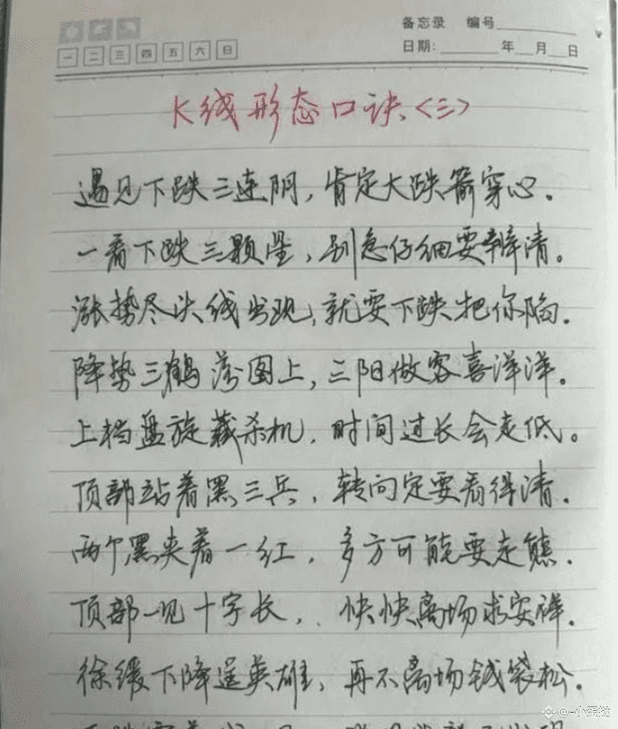 备忘录 编号
一 二 三 四 五 六 日
日期: 年 月 日
K线形态口诀<三>
遇见下跌三连阴,肯定大跌箭穿心.
一看下跌三颗星,别急仔细要辨清。
涨势尽头线出现,就要下跌把你陷.
降势三鹤落图上,三阳做客喜洋洋.
上档盘旋藏杀机,时间过长会走低。
顶部站着黑三兵,转向定要看得清.
两个黑夹着一红,多方可能要走熊.
顶部一见十字长,快快离场求安祥.
徐缓下降逞英雄,再不离场钱袋松.